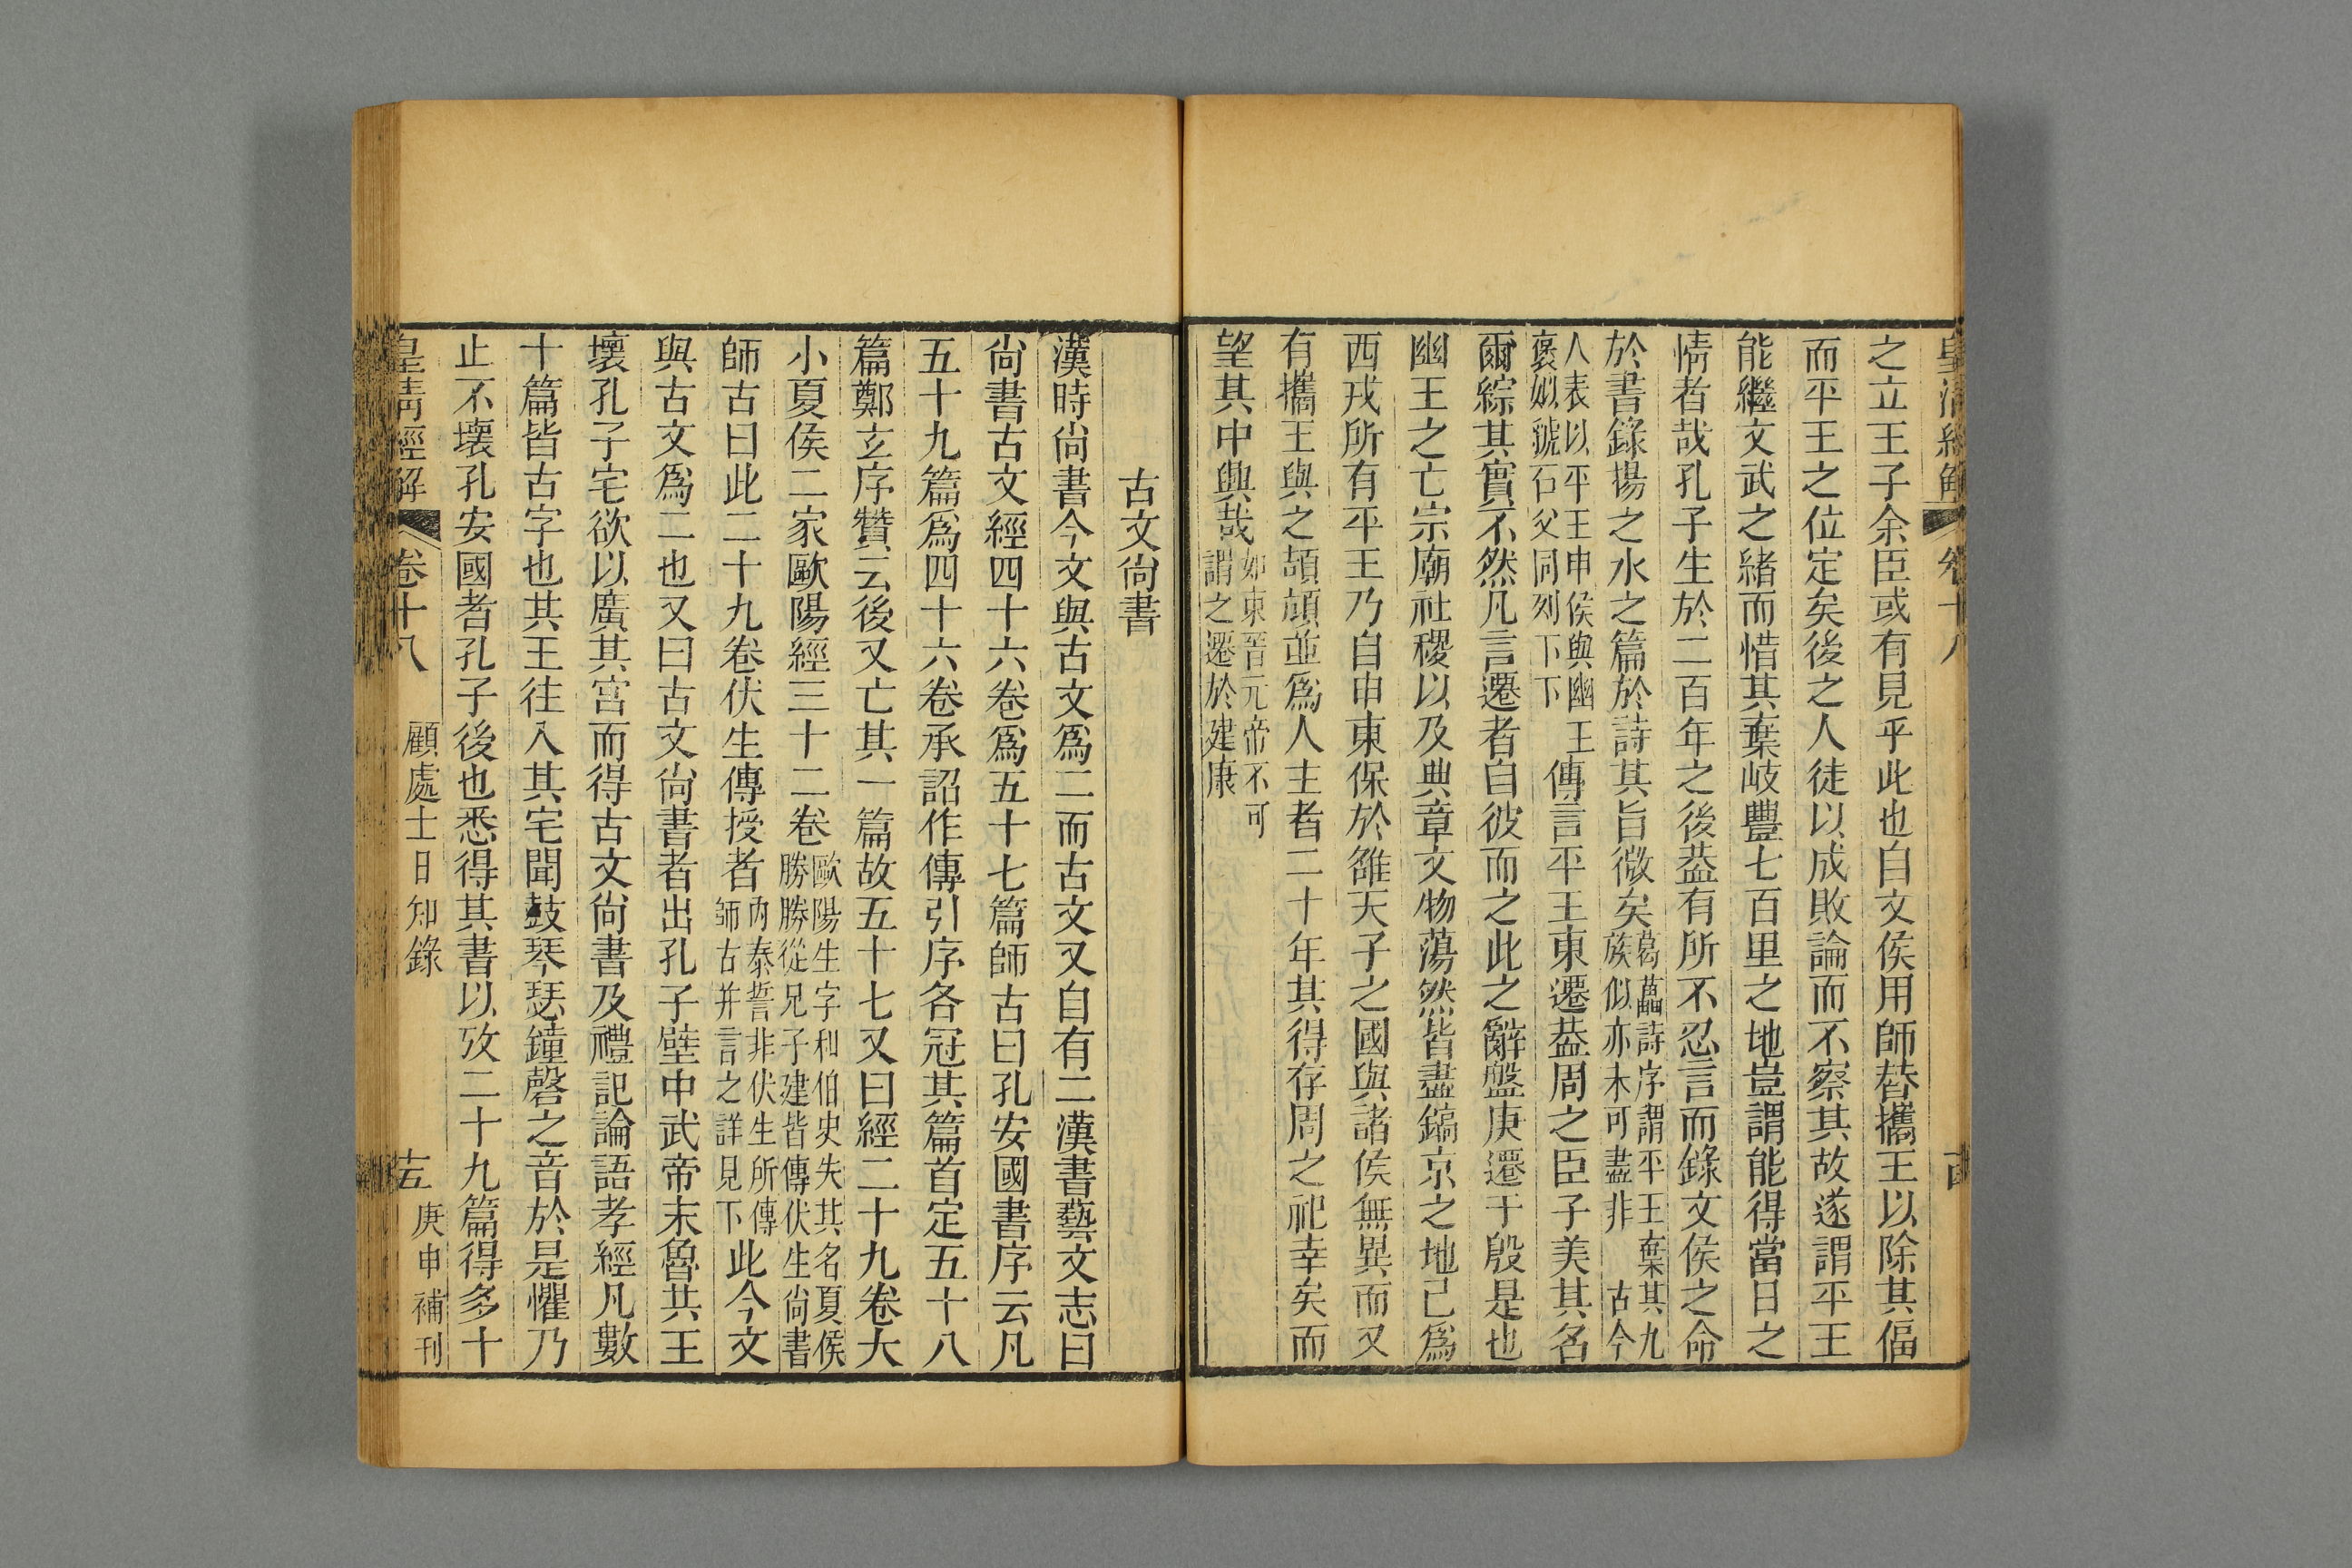 皇清經解 卷十八
之立王子余臣或有見乎此也自文侯用師替攜王以除其偪
而平王之位定矣後之人徒以成敗論而不察其故遂謂平王
能繼文武之緒而惜其棄岐豐七百里之地豈謂能得當日之
情者哉孔子生於二百年之後葢有所不忍言而錄文侯之命
於書錄揚之水之篇於詩其旨微矣葛藟詩序謂平王棄其九族似亦未可盡非 古今
人表以平王申侯與幽王襃姒虢石父同列下下傳言平王東遷葢周之臣子美其名
爾綜其實不然凡言遷者自彼而之此之辭盤庚遷于殷是也
幽王之亡宗廟社稷以及典章文物蕩然皆盡鎬京之地已爲
西戎所有平王乃自申東保於雒天子之國與諸侯無異而又
有攜王與之頡頏並爲人主者二十年其得存周之祀幸矣而
望其中興哉如東晉元帝不可謂之遷於建康
古文尙書
漢時尙書今文與古文爲二而古文又自有二漢書藝文志曰
尙書古文經四十六卷爲五十七篇師古曰孔安國書序云凡
五十九篇爲四十六卷承詔作傳引序各冠其篇首定五十八
篇鄭玄序贊云後又亡其一篇故五十七又曰經二十九卷大
小夏侯二家歐陽經三十二卷歐陽生字和伯史失其名夏侯勝勝從兄子建皆傳伏生尙書
師古曰此二十九卷伏生傳授者內泰誓非伏生所傳師古并言之詳見下此今文
與古文爲二也又曰古文尙書者出孔子壁中武帝末魯共王
壞孔子宅欲以廣其宮而得古文尙書及禮記論語孝經凡數
十篇皆古字也共王往入其宅聞鼓琴瑟鐘磬之音於是懼乃
止不壞孔安國者孔子後也悉得其書以攷二十九篇得多十
皇清經解 卷十八 顧處士日知錄 十五 庚申補刊